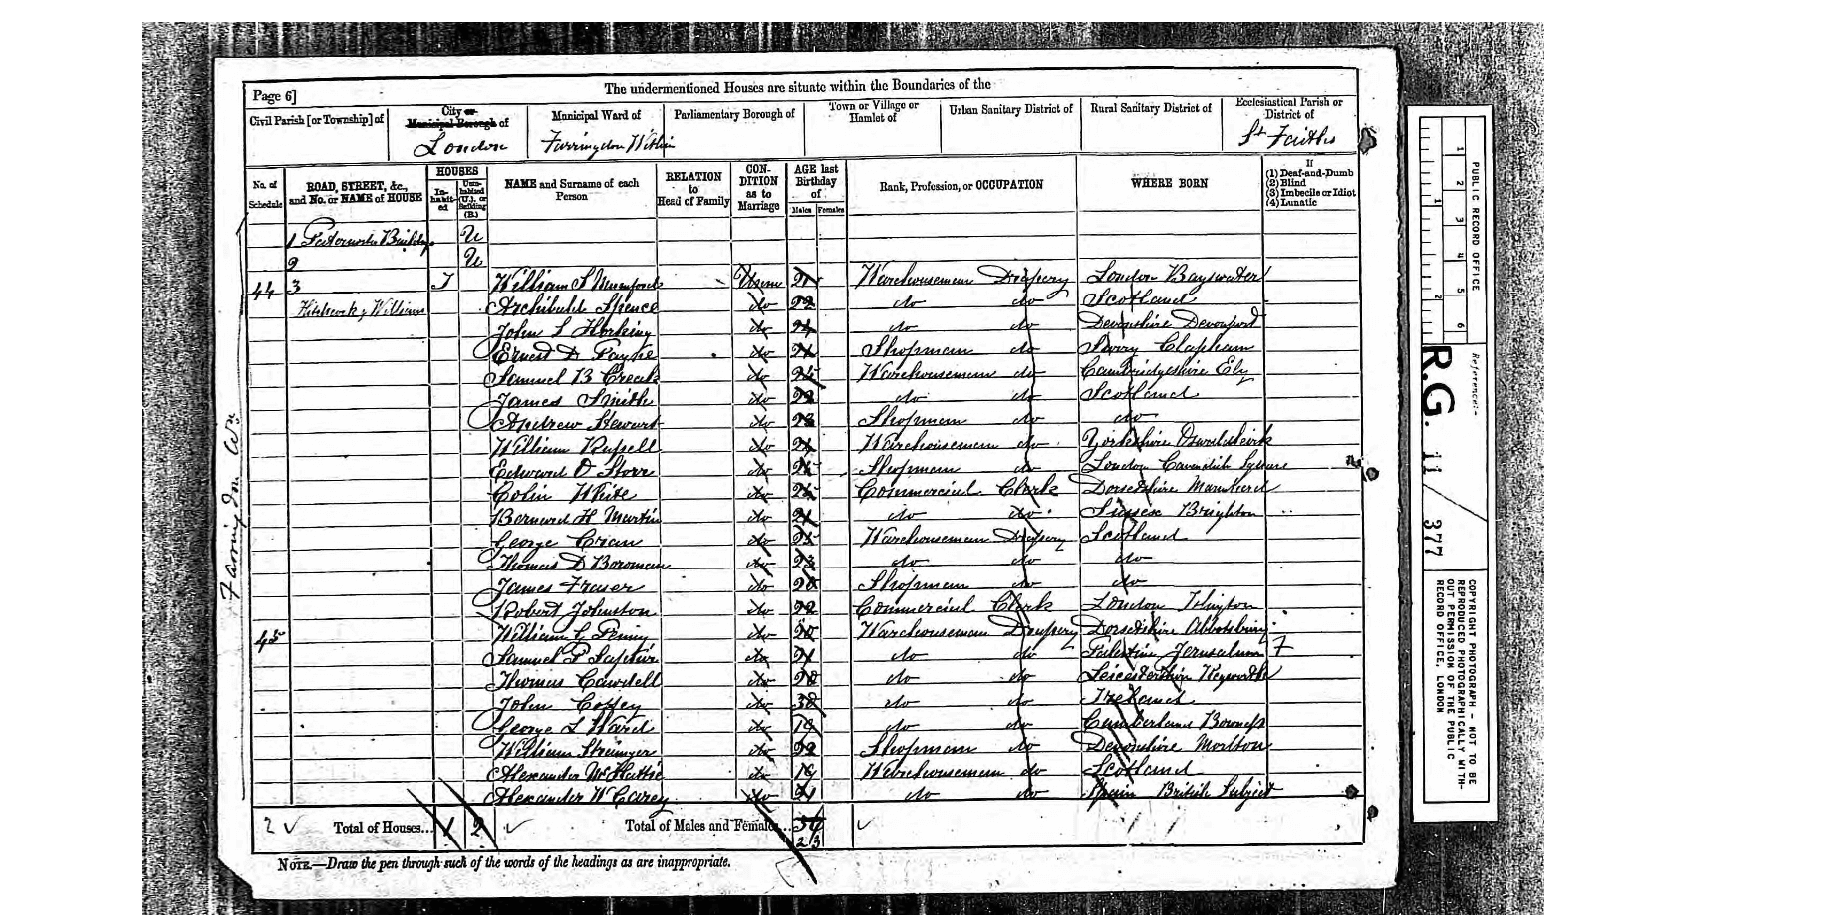 The undermentioned Houses are situate within the Boundaries of the
Page 6]
Civil Parish [or Township] of
City or Municipal Borough of
London
Municipal Ward of
Farringdon Within
Parliamentary Borough of
Town or Village or Hamlet of
Urban Sanitary District of
Rural Sanitary District of
Ecclesiastical Parish or District of
St Faiths
No. of Schedule
ROAD, STREET, &c., and No. or NAME of HOUSE
HOUSES
Inhabited
Uninhabited (U.), or Building (B.)
NAME and Surname of each Person
RELATION to Head of Family
CONDITION as to Marriage
AGE last Birthday of
Males Females
Rank, Profession, or OCCUPATION
WHERE BORN
If
(1) Deaf-and-Dumb
(2) Blind
(3) Imbecile or Idiot
(4) Lunatic
1 Paternoster U
2 U
44 3 I William S Unm 21 Warehouseman Drapery London Bayswater
Hitchcock, Williams Archibald Spence do 22 do do Scotland
John S do do do Devonshire Devonport
Ernest D Payne do 21 Shopman do Surry Clapham
Samuel B Creak do 25 Warehouseman do Cambridgeshire Ely
James Smith do 22 do do Scotland
Andrew Stewart do 23 Shopman do do
William Russell do Warehouseman do Yorkshire
Edward O Storr do Shopman do London Cavendish Square
Colin White do 25 Commercial Clerk Dorsetshire
Bernard H Martin do 21 do do Sussex Brighton
George do 25 Warehouseman Drapery Scotland
Thomas D do 23 do do do
James Fraser do 20 Shopman do do
Robert Johnston do 22 Commercial Clerk London Islington
45 William G Penny do 20 Warehouseman Drapery Dorsetshire Abbotsbury
Samuel P do 21 do do Palestine Jerusalem
Thomas Cawdell do 20 do do Leicestershire
John Coffey do 30 do do Ireland
George L Ward do 19 do do Cumberland Bowness
William do 22 Shopman do Devonshire
Alexander do 19 Warehouseman do Scotland
Alexander W Carey do 21 do do Spain British Subject
2 Total of Houses... 1 2 Total of Males and Females...
23
NOTE.—Draw the pen through such of the words of the headings as are inappropriate.
Farringdon Wn
PUBLIC RECORD OFFICE
1 2 3 4 5 6
1 2
Reference:-
R.G. 11 377
COPYRIGHT PHOTOGRAPH - NOT TO BE
REPRODUCED PHOTOGRAPHICALLY WITH-
OUT PERMISSION OF THE PUBLIC
RECORD OFFICE, LONDON